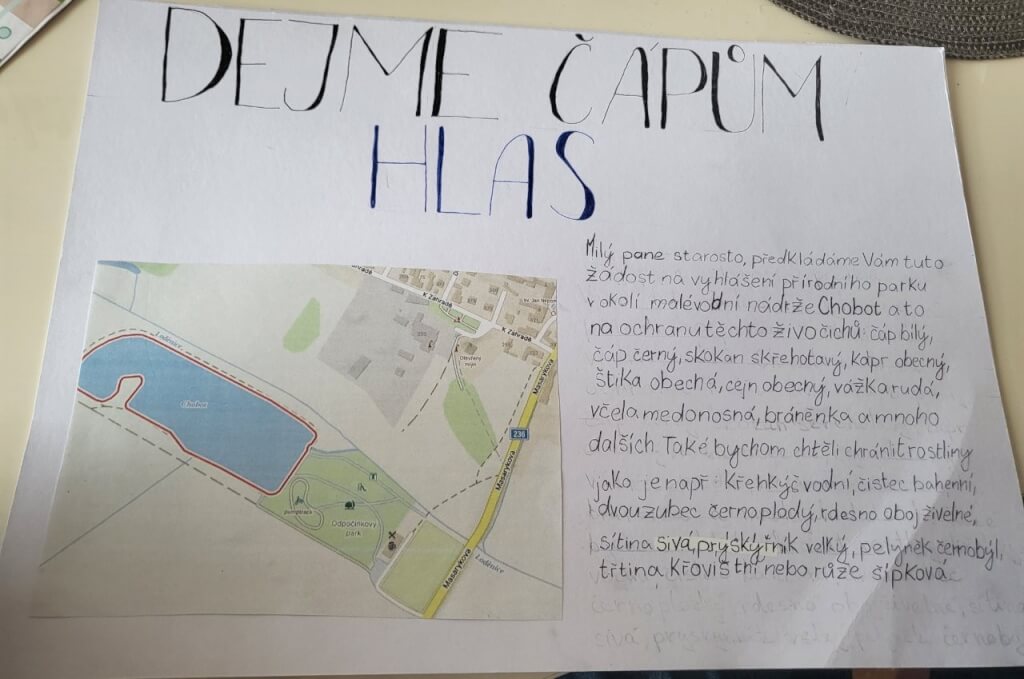 DEJME ČÁPŮM
HLAS
Milý pane starosto, předkládáme Vám tuto
žádost na vyhlášení přírodního parku
v okolí malé vodní nádrže Chobot a to
na ochranu těchto živočichů: čáp bílý,
čáp černý, skokan skřehotavý, kapr obecný,
štika obechá, cejn obecný, vážka rudá,
včela medonosná, bráněnka a mnoho
dalších. Také bychom chtěli chránit rostliny
jako je např. Křehkýš vodní, čistec bahenní,
dvouzubec černoplodý, rdesno obojživelné,
sítina sivá, prýskyřník velký, pelyněk černobýl,
třtina křovištní nebo růže šípková
K Zahradě
K Zahradě
Otevřený
mlýn
Loděnice
Chobot
Masarykova
236
Masarykova
Masarykova
pumptrack
Odpočinkový
park
Loděnice